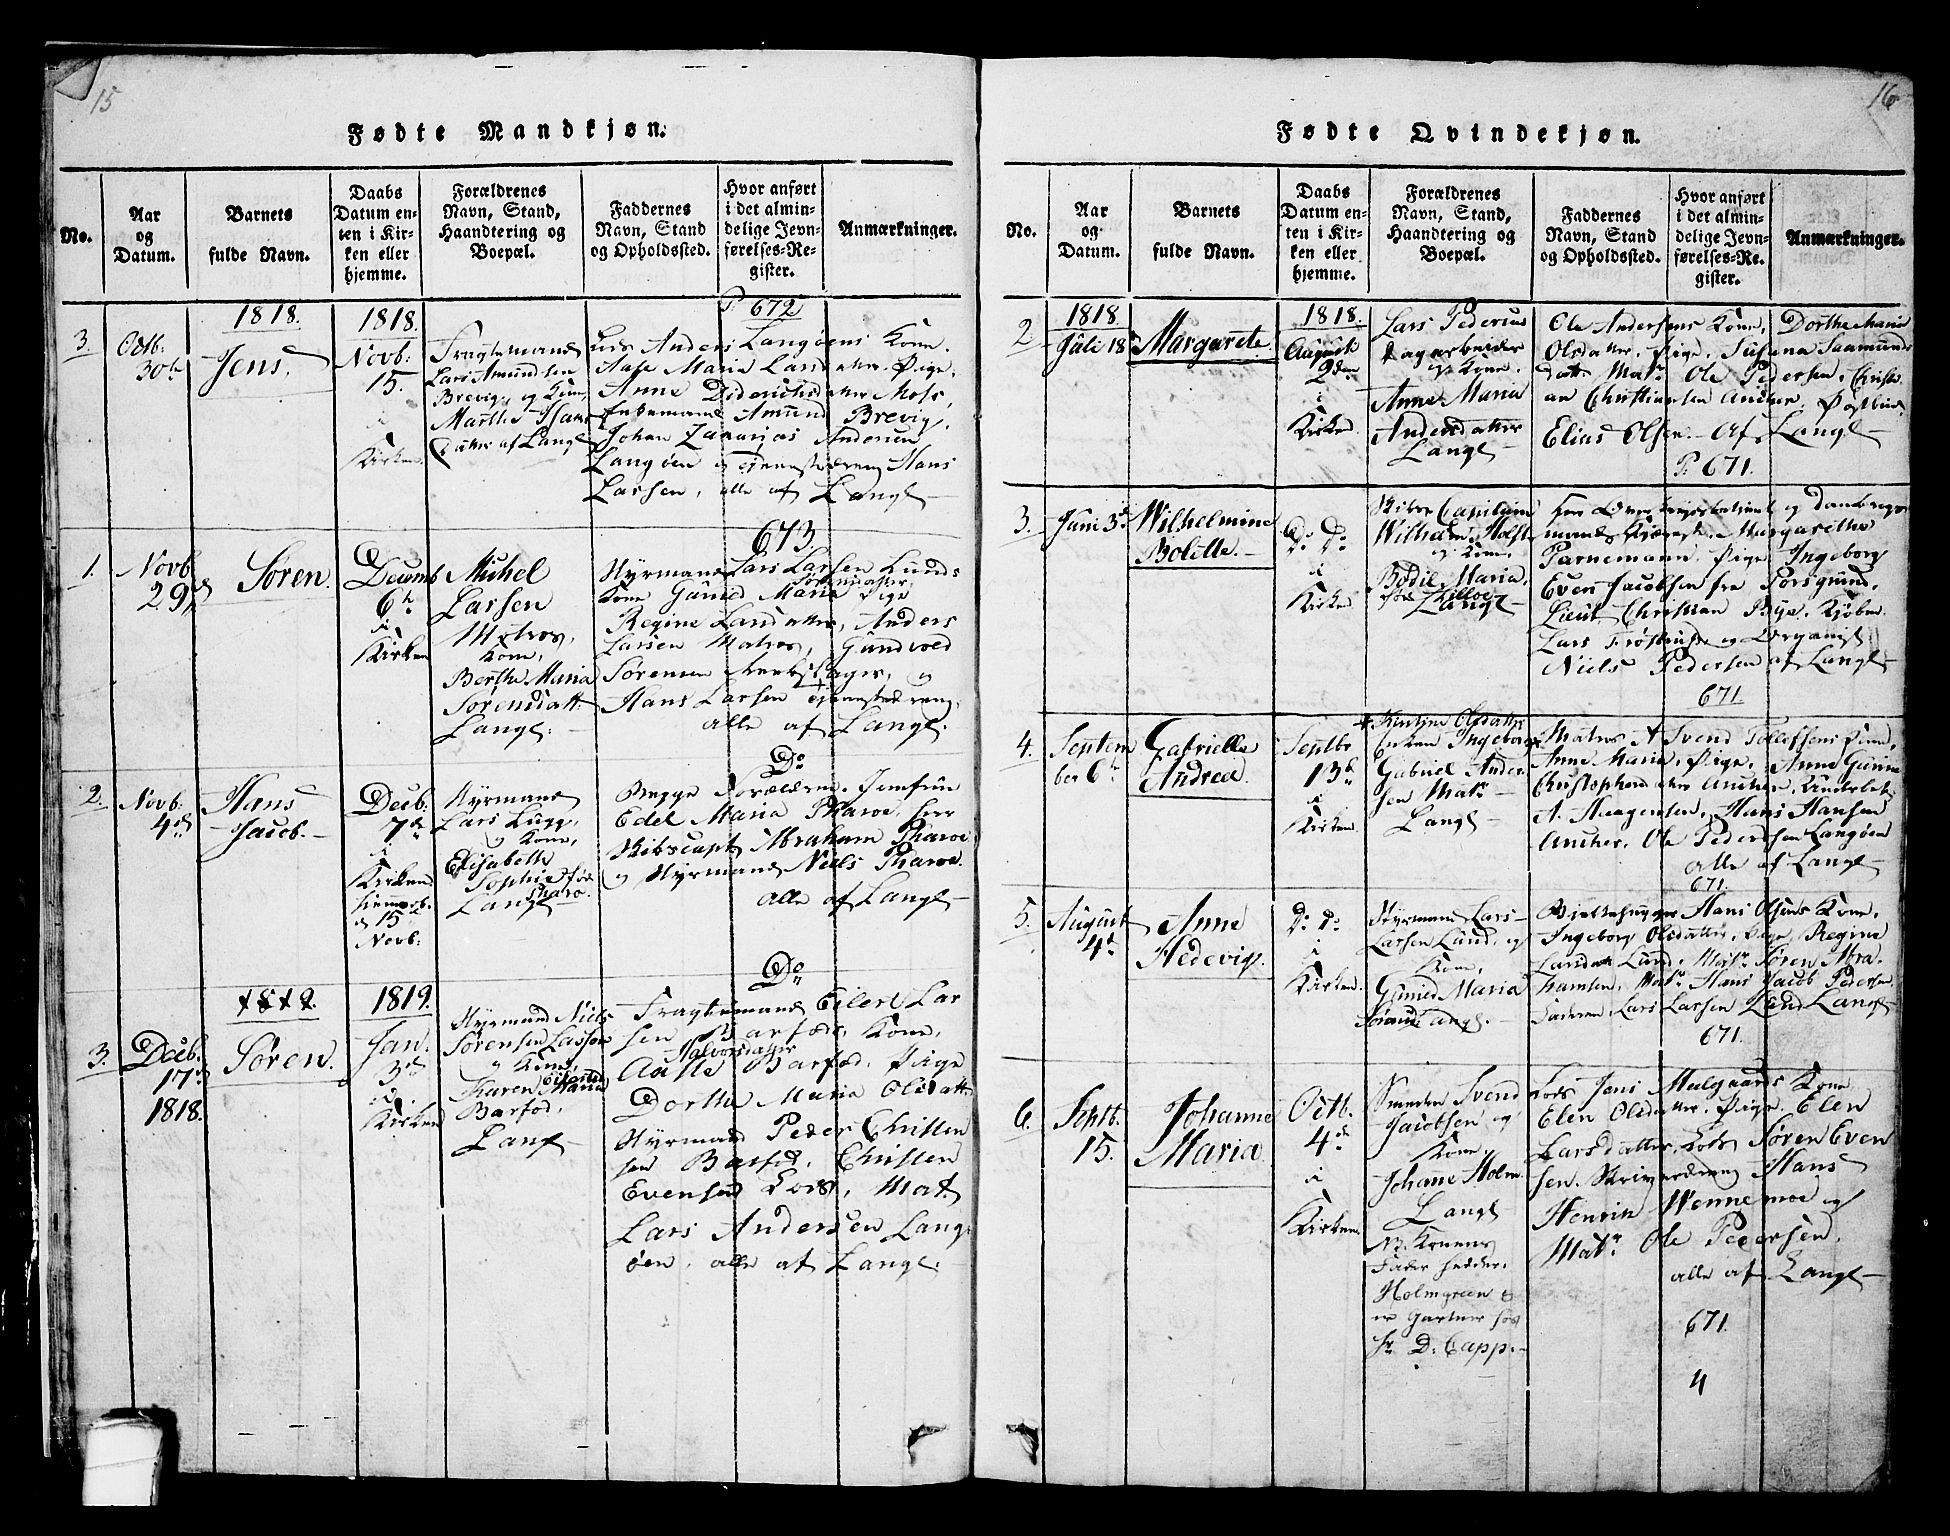 15
Fødte Mandkjøn.
No.
Aar
og
Datum.
Barnets
fulde Navn.
Daabs
Datum en-
ten i Kir-
ken eller
hjemme.
Forældrenes
Navn, Stand,
Haandtering og
Boepæl.
Faddernes
Navn, Stand
og Opholdssted.
Hvor anført
i det almin-
delige Jevn-
førelses-Re-
gister.
Anmærkninger.
3
1818.
Octb.
30te
Jens.
1818.
Novb:
15.
i
Kirken.
Fragtemand
Lars Amundsen
Brevig, og Kone,
Marthe Isaks
Datter af Lang
P. 672
Lods Anders Langøens Kone.
Aase Maria Larsdatter, Pige.
Anne Diderichsdatter Moss,
Enkemand Amund Brevig,
Johan Zakarias Andersen
Langøen og Tjenestedreng Hans
Larsen, alle af Lang
1.
Novb
29de
Søren
Decemb
6te
i
Kirken
Michel
Larsen
Matros,
Kone,
Berthe Maria
Sørensdatt:
Lang:
673.
Styrmand Lars Larsen Lunds
Kone Gunild Maria Sørensdatter, Pige
Regine Larsdatter, Anders
Larsen Matros, Gundvold
Sørensen, og
Hans Larsen Tjenestedreng,
alle af Lang:
2.
Novb:
4de
Hans
Jacob.
Decb:
7de
i
Kirken
hjemdb.
d 15
Novb:
Styrmand
Lars Lugg,
og Kone,
Elisabeth
Sophie fød
Pharo.
Lang
Do
Begge Forældrene. Jomfrue
Edel Maria Pharoe, Herr
Skibscapt. Abraham Pharoe
og Styrmand Niels Pharoe.
alle af Lang
3.
Decb.
17de
1818.
1819.
Søren.
1819.
Jan.
3de
i
Kirken
Styrmand Niels
Sørensen Lassen
og Kone,
Karen Maria
Barfod.
Lang
Do
Fragtemand Eilert Lar
sen Barfods Kone,
Aalle Halvorsdatter Barfod, Pige
Dorthe Maria Olsdatt:
Styrmand Peder Christen
sen Barfod, Christen
Evensen Lods, Mat.
Lars Andersen Lang
øen, alle af Lang:
16
Fødte Qvindekjøn.
No.
Aar
og
Datum.
Barnets
fulde Navn.
Daabs
Datum en-
ten i Kir-
ken eller
hjemme.
Forældrenes
Navn, Stand,
Haandtering og
Boepæl.
Faddernes
Navn, Stand
og Opholdssted.
Hvor anført
i det almin-
delige Jevn-
førelses-Re-
gister.
Anmærkninger.
2
1818
Juli 18
Margarete
1818.
August
2den
i
Kirken
Lars Pedersen
Dagarbeider
og Kone.
Anne Maria
Andersdatter
Lang
Ole Andersens Kone, Dorthe Maria
Olsdatter, Pige, Susana Saamunds
datt. Matr. Ole Pedersen, Christi
an Christiansen Ancher, Postbud
Elias Olsen. Af Lang
P. 671.
3.
Juni 3de
Wilhelmine
Bolette.
Do Do
i
Kirken
Wilhelm Holst
og Kone
Bodil Maria,
Lang
Margarethe
Parnemann, Pige, Ingeborg
Even Jacobsen fra Porsgrund,
Lieut Christian Bye, Kjøbm.
Lars og Organist
Niels Pedersen af Lang
671.
4.
Septem
ber 6te
Gabrielle
Andrea.
Septbr
13de
i
Kirken
Kirstine Olsdatter
Enken Ingeborg
Gabriel Ander
sen Matr.
Lang
Matros A Svend Tollefsens Pine,
Anne Maria, Pige, Anne Gurine
Christophersdatter Ancher, Underbet.
A. Aagensen, Hans Hansen
Ancher, Ole Pedersen Langøen
alle af Lang
671.
5.
August
4de
Anne
Hedevig.
Do Do
i
Kirken.
Styrmand Lars
Larsen Lund, og
Kone,
Gunild Maria
Lang.
Hans Olsens Kone,
Ingeborg Olsdatter, Pige Regine
Larsdatt Lund, Matr. Søren Abra
hamsen, Matr. Hans Jacob Pedersen
Faderen, Lars Larsen Lund Lang
671.
6.
Septb.
15.
Johanne
Maria
Octb.
4de
i
Kirken
Smeden Svend
Jacobsen og
Kone,
Johanne Holm
Lang
NB. Konens
Fader hedder.
Holmgreen &
er Gartner hos
Hr D. Capp.
Lods Jens Malgaards Kone
Elen Olsdatter, Pige, Elen
Larsdatter, Lods Søren Even
sen. Skriverdreng Hans
Henrik Wennemoe og
Matr. Ole Pedersen.
alle af Lang
671.
4